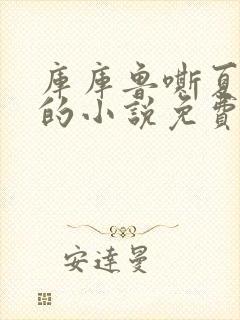 庫庫魯嘶夏
的小說免費
安達曼